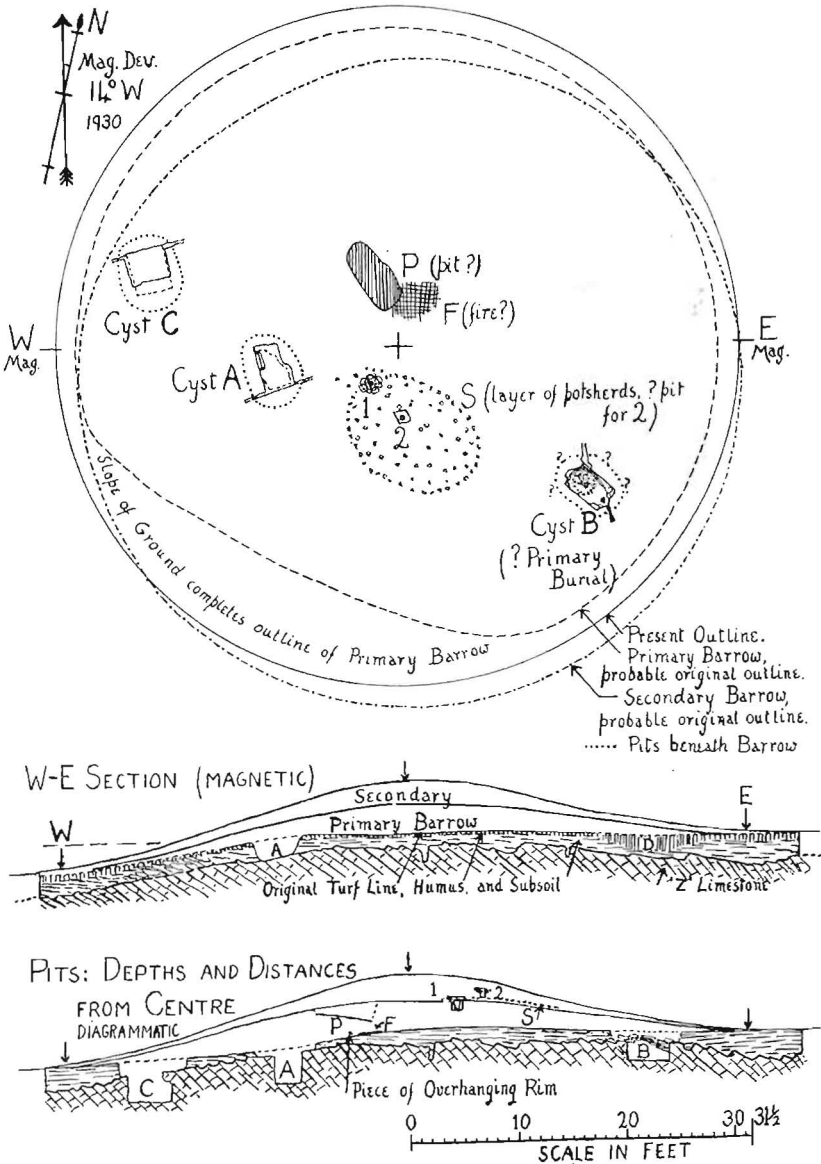 N
Mag. Dev.
14° W
1930
P (pit?)
F (fire?)
Cyst C
W
Mag.
E
Mag.
Cyst A
1
2
S (layer of potsherds, ? pit
for 2)
? ?
? ?
Cyst B
(? Primary
Burial)
Slope of Ground completes outline of Primary Barrow
Present Outline.
Primary Barrow,
probable original outline.
Secondary Barrow,
probable original outline.
Pits beneath Barrow
W-E SECTION (MAGNETIC)
Secondary
Primary Barrow
W
E
A
B
Original Turf Line, Humus, and Subsoil
"Z" Limestone
PITS: DEPTHS AND DISTANCES
FROM CENTRE
DIAGRAMMATIC
1 2
P F S
C A B
Piece of Overhanging Rim
0 10 20 30 31½
SCALE IN FEET